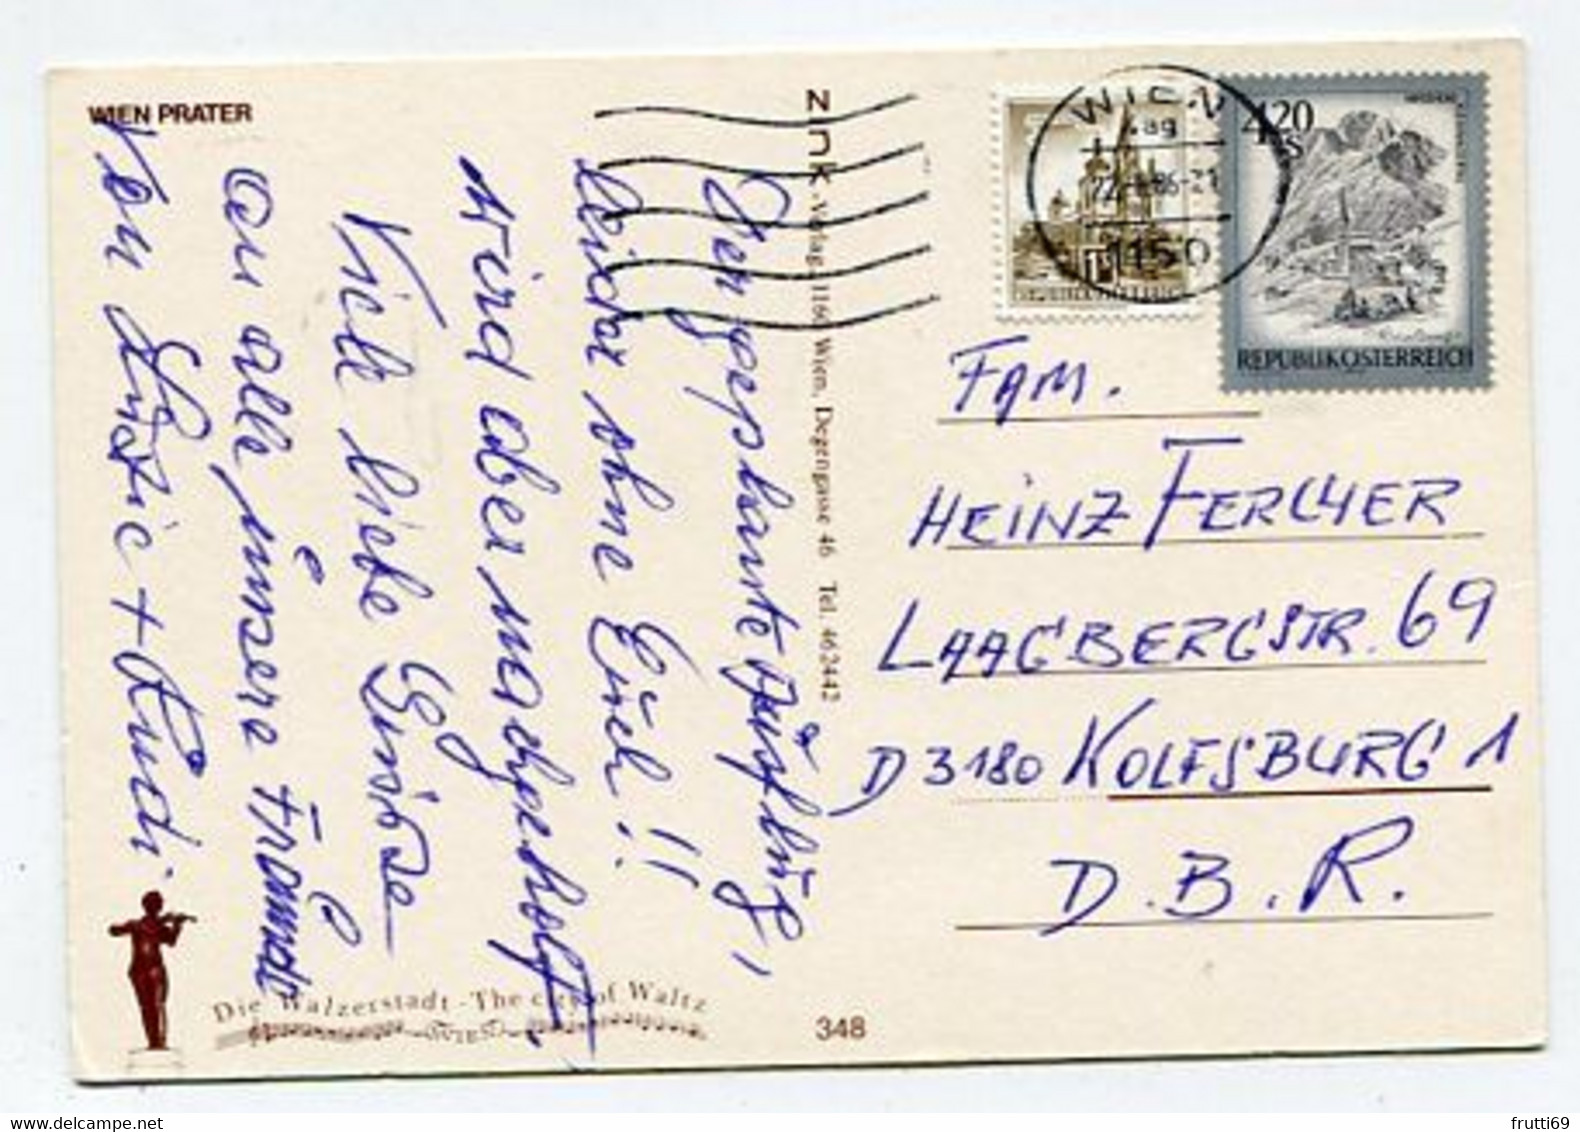 WIEN PRATER
Den geplante Ausflug,
leider ohne Euch!!
wird aber nachgeholt.
Viele liebe Grüße
an alle unsere Freunde
Von + Rudi.
zink-Verlag, 1160 Wien, Degengasse 46 Tel. 462442
1150
4,20
S
REPUBLIK ÖSTERREICH
REPUBLIK ÖSTERREICH
FAM.
HEINZ FERCHER
LAAGBERGSTR. 69
D 3180 WOLFSBURG 1
D.B.R.
Die Walzerstadt - The city of Waltz
WIEN
348
frutti69